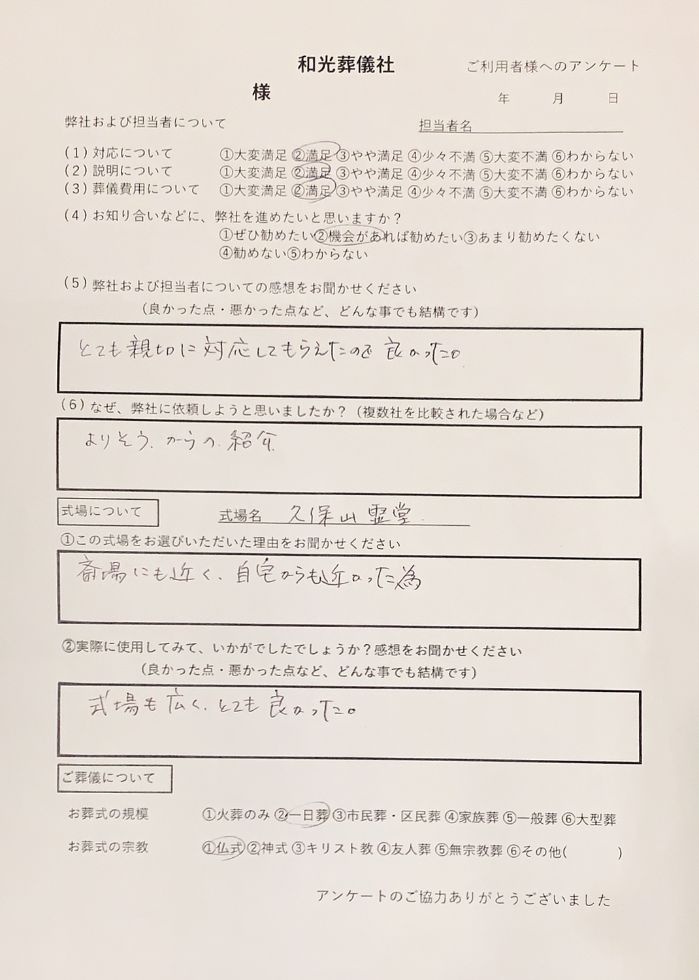 和光葬儀社 ご利用者様へのアンケート
様
年 月 日
弊社および担当者について 担当者名
(1) 対応について ①大変満足 ②満足 ③やや満足 ④少々不満 ⑤大変不満 ⑥わからない
(2) 説明について ①大変満足 ②満足 ③やや満足 ④少々不満 ⑤大変不満 ⑥わからない
(3) 葬儀費用について ①大変満足 ②満足 ③やや満足 ④少々不満 ⑤大変不満 ⑥わからない
(4) お知り合いなどに、弊社を進めたいと思いますか？
①ぜひ勧めたい②機会があれば勧めたい③あまり勧めたくない
④勧めない⑤わからない
(5) 弊社および担当者についての感想をお聞かせください
（良かった点・悪かった点など、どんな事でも結構です）
とても親切に対応してもらえたので良かった。
(6) なぜ、弊社に依頼しようと思いましたか？（複数社を比較された場合など）
よりそう.からの.紹介.
式場について 式場名 久保山霊堂.
①この式場をお選びいただいた理由をお聞かせください
斎場にも近く、自宅からも近かった為
②実際に使用してみて、いかがでしたでしょうか？感想をお聞かせください
（良かった点・悪かった点など、どんな事でも結構です）
式場も広く、とても良かった。
ご葬儀について
お葬式の規模 ①火葬のみ ②一日葬 ③市民葬・区民葬 ④家族葬 ⑤一般葬 ⑥大型葬
お葬式の宗教 ①仏式 ②神式 ③キリスト教 ④友人葬 ⑤無宗教葬 ⑥その他( )
アンケートのご協力ありがとうございました